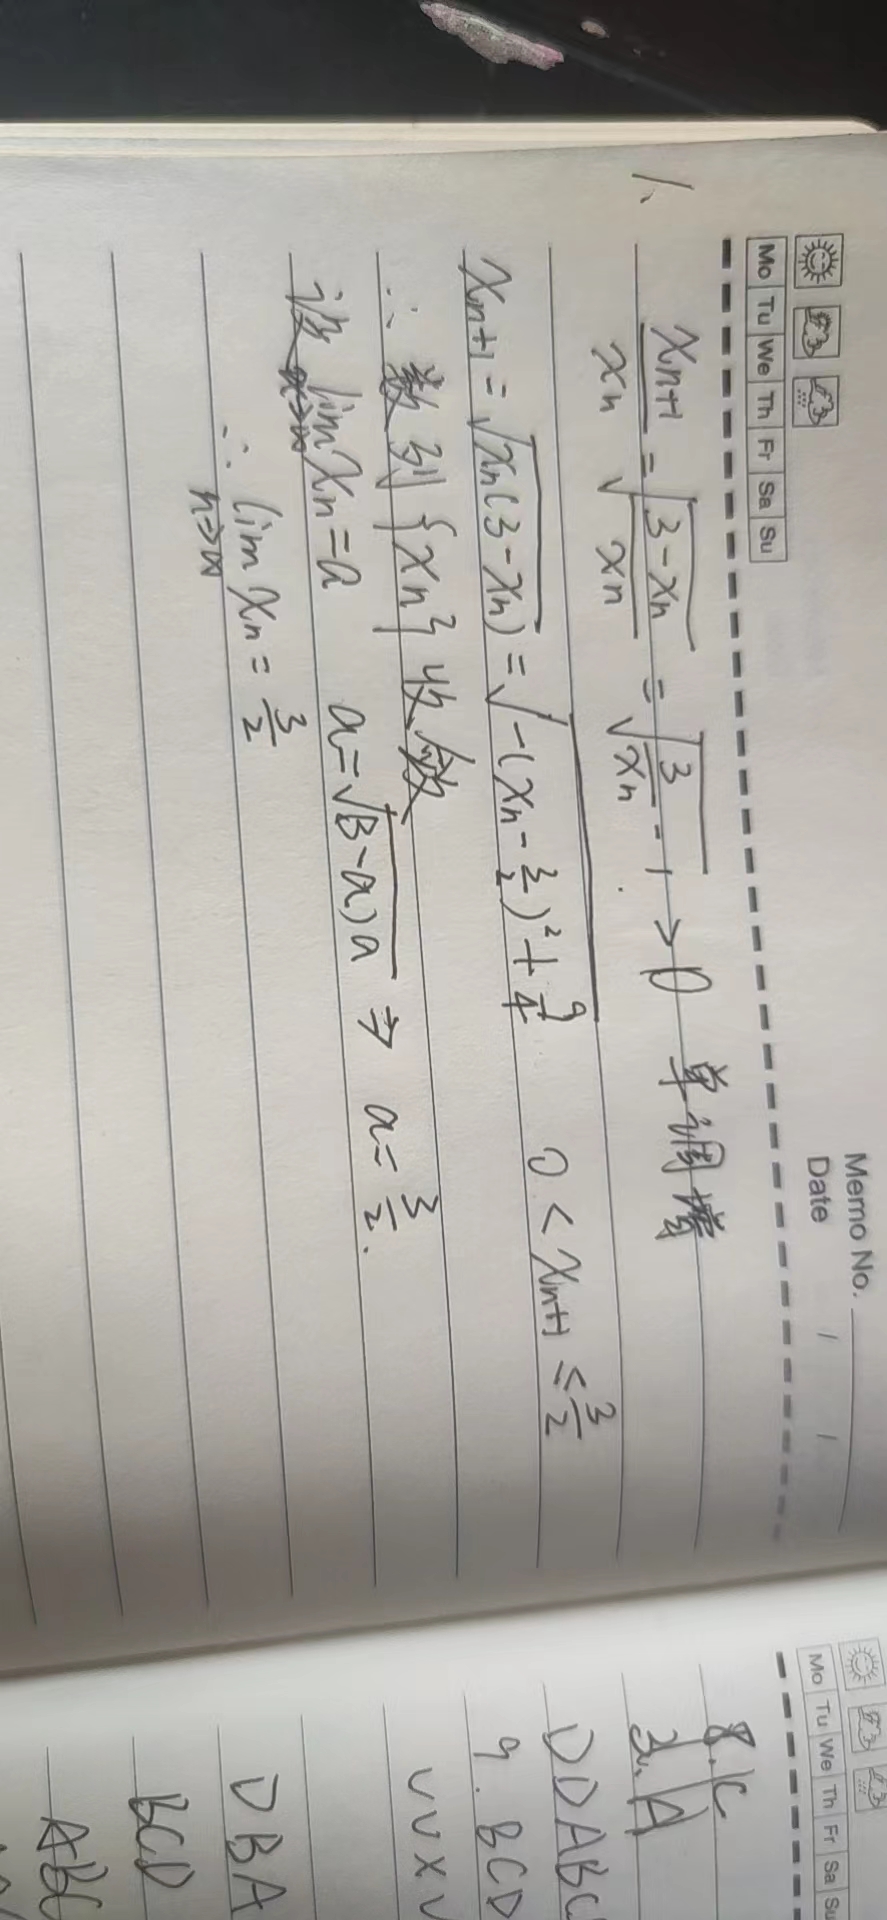 Memo No.
Mo Tu We Th Fr Sa Su
Date / /
1、 xn+1/xn = √((3-xn)/xn) = √(3/xn - 1) > 0 单调增
xn+1 = √(xn(3-xn)) = √(-(xn - 3/2)² + 9/4) 0 < xn+1 ≤ 3/2
∴ 数列 {xn} 收敛
设 lim n→∞ xn = a a = √((3-a)a) ⇒ a = 3/2.
∴ lim n→∞ xn = 3/2
Mo Tu We Th Fr Sa Su
8. C
A
DDABC
9. BCD
VVXV
DBA
BCD
ABC